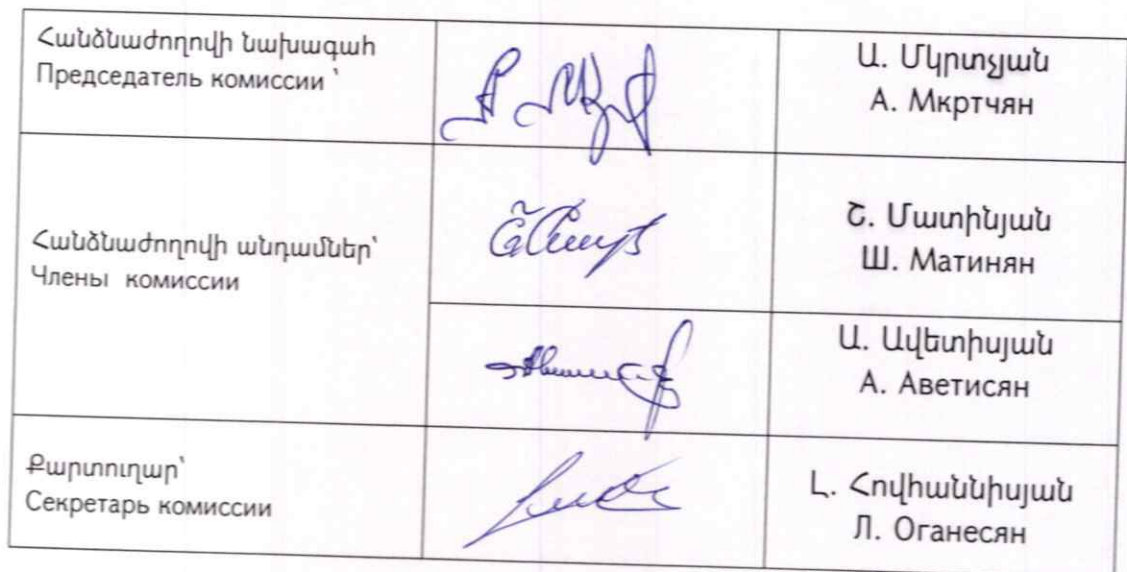 Հանձնաժողովի նախագահ
Председатель комиссии ՝
Ա. Մկրտչյան
А. Мкртчян
Հանձնաժողովի անդամներ՝
Члены комиссии
Շ. Մատինյան
Ш. Матинян
Ա. Ավետիսյան
А. Аветисян
Քարտուղար՝
Секретарь комиссии
Լ. Հովհաննիսյան
Л. Оганесян